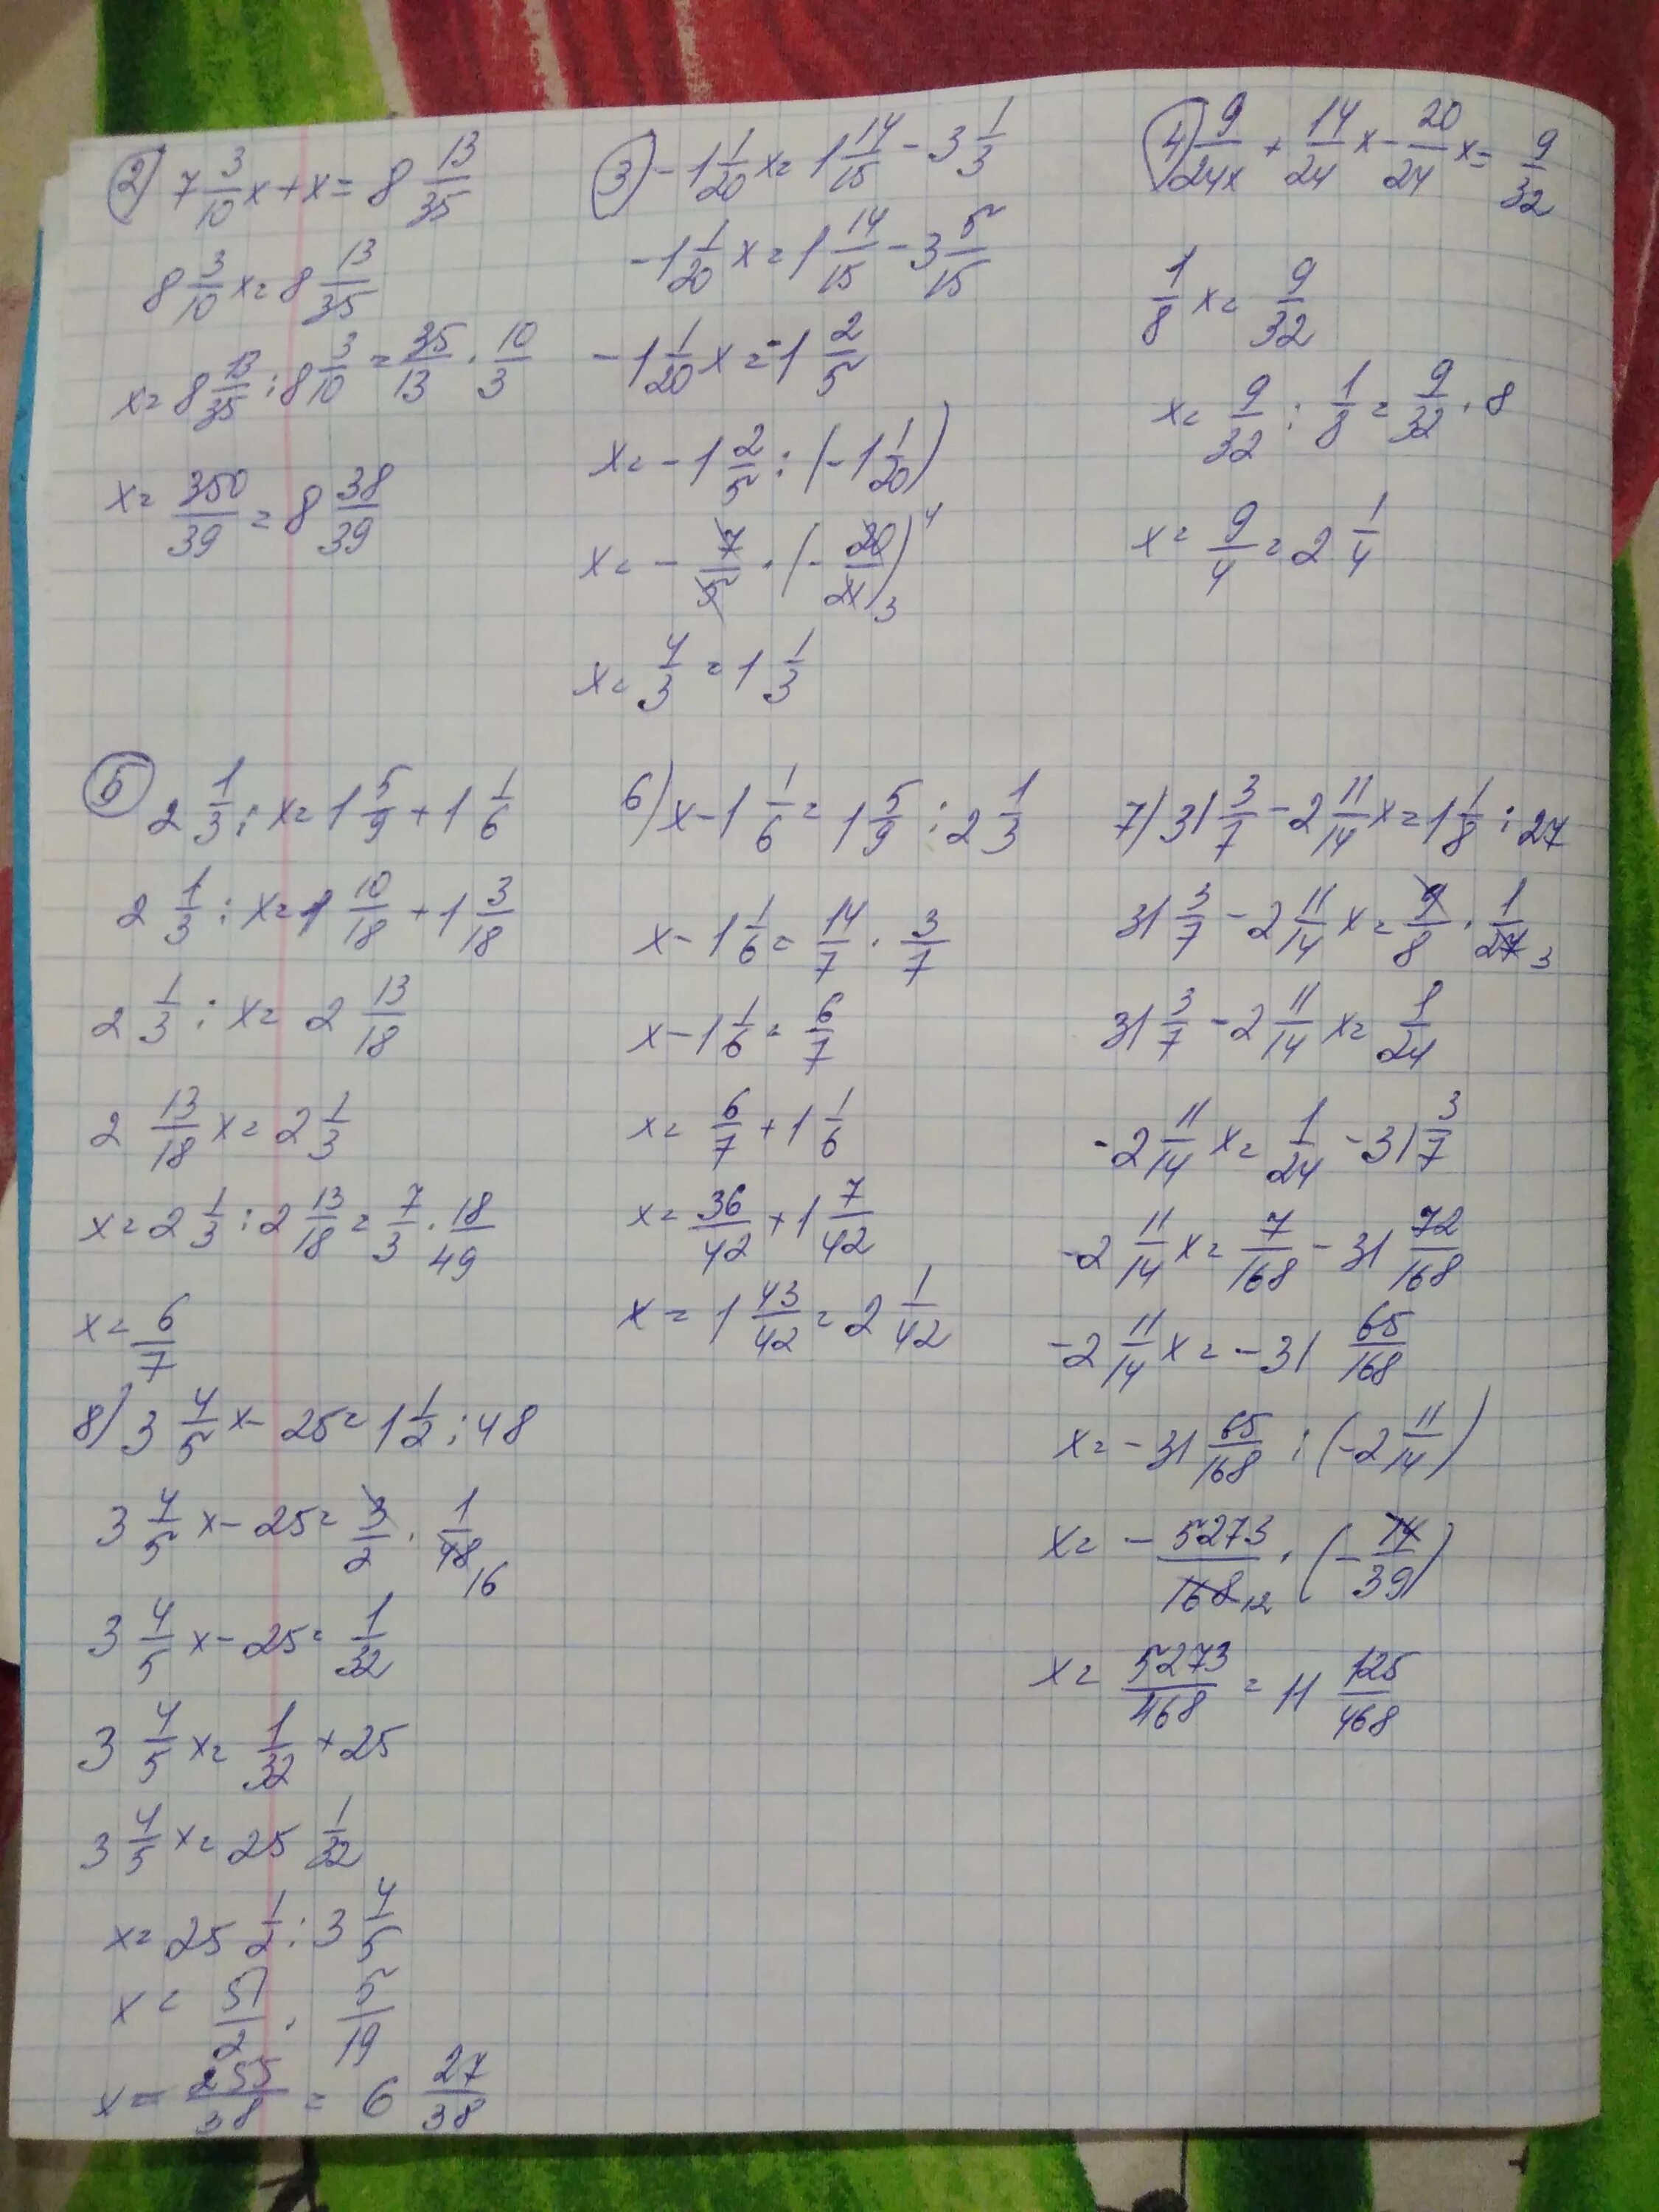 2) 7 3/10 x + x = 8 13/35
8 3/10 x = 8 13/35
x = 8 13/35 : 8 3/10 = 35/13 · 10/3
x = 350/39 = 8 38/39
3) - 1 1/20 x = 1 14/15 - 3 1/3
- 1 1/20 x = 1 14/15 - 3 5/15
- 1 1/20 x = - 1 2/5
x = - 1 2/5 : (- 1 1/20)
x = - 7/5 · (- 20/21) 4 3
x = 4/3 = 1 1/3
4) 9/24x + 14/24 x - 20/24 x = 9/32
1/8 x = 9/32
x = 9/32 : 1/8 = 9/32 · 8
x = 9/4 = 2 1/4
5) 2 1/3 : x = 1 5/9 + 1 1/6
2 1/3 : x = 1 10/18 + 1 3/18
2 1/3 : x = 2 13/18
2 13/18 x = 2 1/3
x = 2 1/3 : 2 13/18 = 7/3 · 18/49
x = 6/7
6) x - 1 1/6 = 1 5/9 : 2 1/3
x - 1 1/6 = 14/7 · 3/7
x - 1 1/6 = 6/7
x = 6/7 + 1 1/6
x = 36/42 + 1 7/42
x = 1 43/42 = 2 1/42
7) 31 3/7 - 2 11/14 x = 1 1/8 : 27
31 3/7 - 2 11/14 x = 9/8 · 1/27 3
31 3/7 - 2 11/14 x = 1/24
- 2 11/14 x = 1/24 - 31 3/7
- 2 11/14 x = 7/168 - 31 72/168
- 2 11/14 x = - 31 65/168
x = - 31 65/168 : (- 2 11/14)
x = - 5273/168 12 · (- 14/39)
x = 5273/468 = 11 125/468
8) 3 4/5 x - 25 = 1 1/2 : 48
3 4/5 x - 25 = 3/2 · 1/48 16
3 4/5 x - 25 = 1/32
3 4/5 x = 1/32 + 25
3 4/5 x = 25 1/32
x = 25 1/2 : 3 4/5
x = 51/2 · 5/19
x = 255/38 = 6 27/38